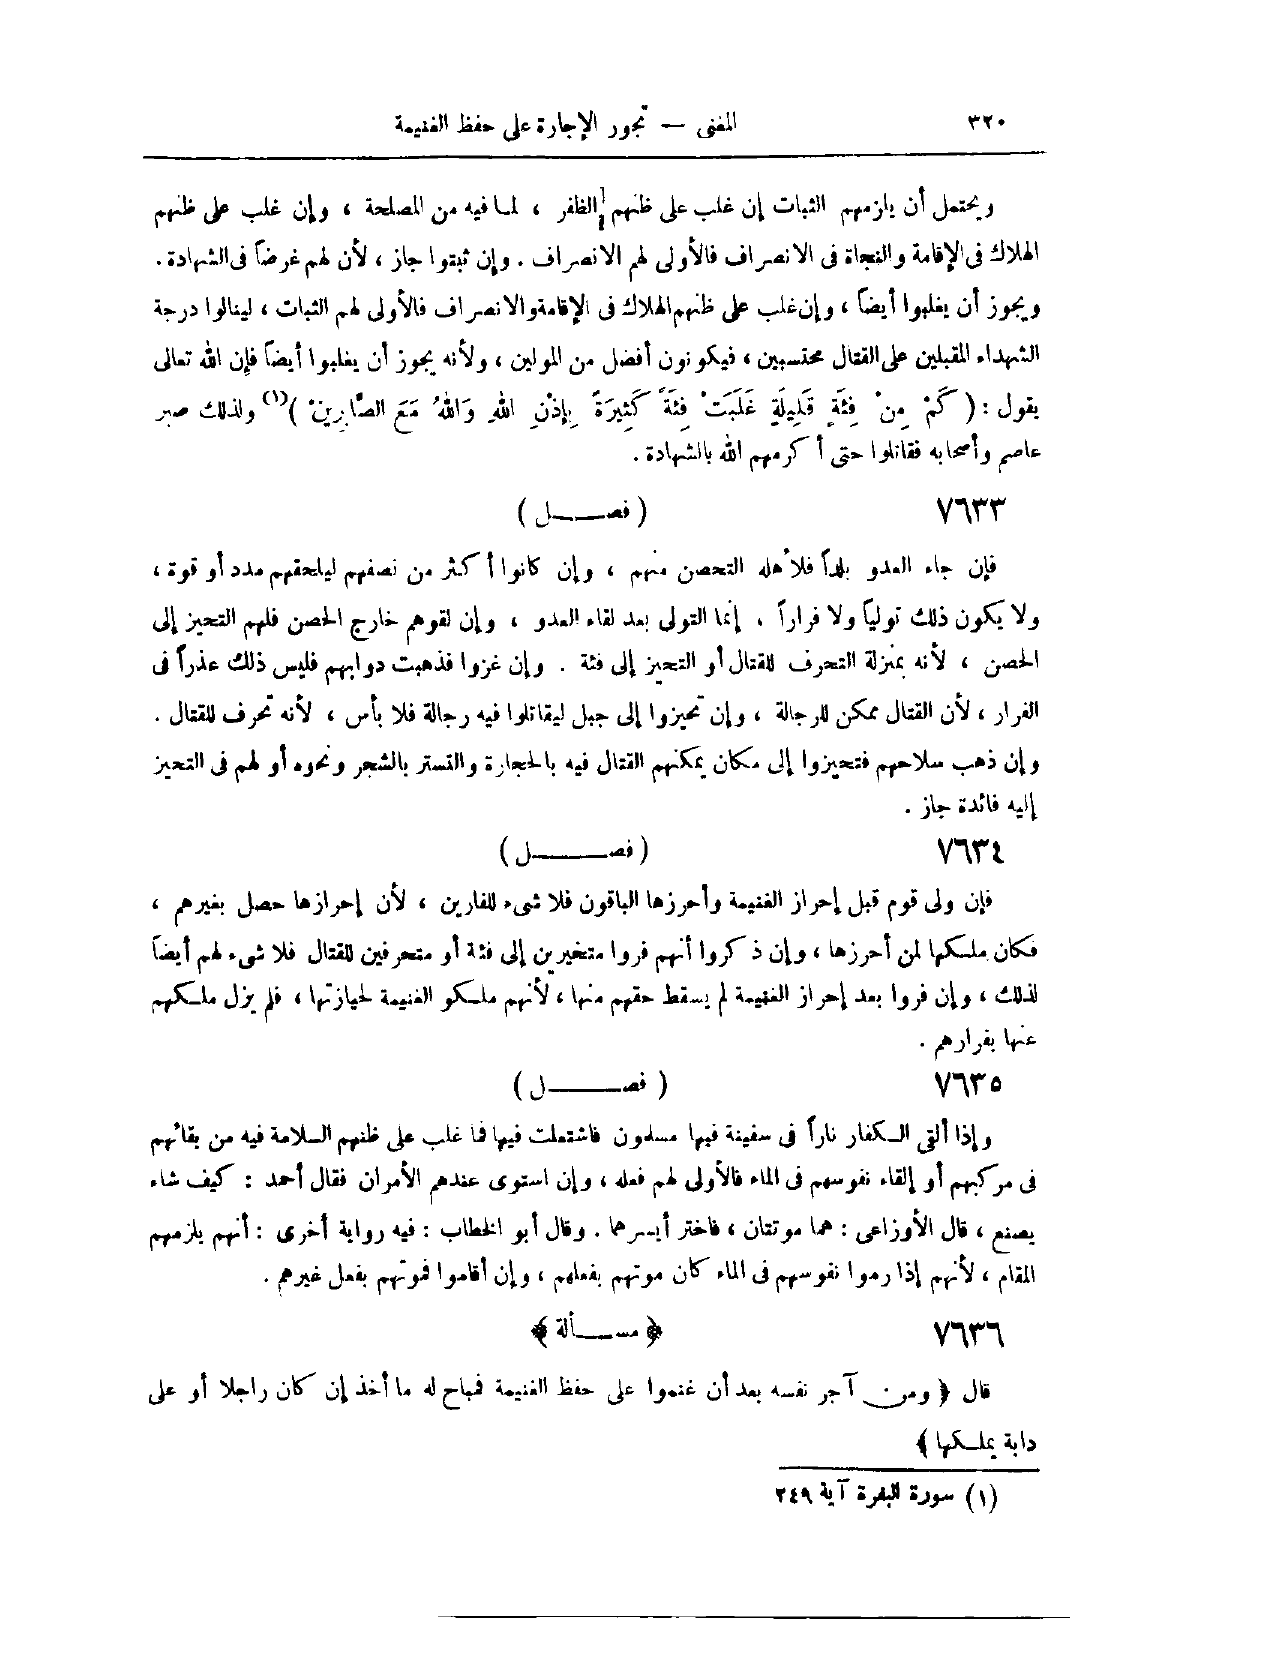 ٣٢٠
المغنى — تجوز الإجارة على حفظ الغنيمة
ويحتمل أن يلزمهم الثبات إن غلب على ظنهم الظفر ، لما فيه من المصلحة ، وإن غلب على ظنهم
الهلاك فى الإقامة والنجاة فى الانصراف فالأولى لهم الانصراف . وإن ثبتوا جاز ، لأن لهم غرضاً فى الشهادة .
ويجوز أن يغلبوا أيضاً ، وإن غلب على ظنهم الهلاك فى الإقامة والانصراف فالأولى لهم الثبات ، لينالوا درجة
الشهداء المقبلين على القتال محتسبين ، فيكونون أفضل من المولين ، ولأنه يجوز أن يغلبوا أيضاً فإن الله تعالى
يقول : ( كَمْ مِنْ فِئَةٍ قَلِيلَةٍ غَلَبَتْ فِئَةً كَثِيرَةً بِإِذْنِ اللهِ وَاللهُ مَعَ الصَّابِرِينَ )(١) ولذلك صبر
عاصم وأصحابه فقاتلوا حتى أكرمهم الله بالشهادة .
٧٦٣٣ ( فصـــل )
فإن جاء العدو بلداً فلأهله التحصن منهم ، وإن كانوا أكثر من نصفهم ليلحقهم مدد أو قوة ،
ولا يكون ذلك تولياً ولا فراراً ، إنما التولى بعد لقاء العدو ، وإن لقوهم خارج الحصن فلهم التحيز إلى
الحصن ، لأنه بمنزلة التحرف للقتال أو التحيز إلى فئة . وإن غزوا فذهبت دوابهم فليس ذلك عذراً فى
الفرار ، لأن القتال ممكن للرجالة ، وإن تحيزوا إلى جبل ليقاتلوا فيه رجالة فلا بأس ، لأنه تحرف للقتال .
وإن ذهب سلاحهم فتحيزوا إلى مكان يمكنهم القتال فيه بالحجارة والتستر بالشجر ونحوه أو لهم فى التحيز
إليه فائدة جاز .
٧٦٣٤ ( فصـــل )
فإن ولى قوم قبل إحراز الغنيمة وأحرزها الباقون فلا شىء للفارين ، لأن إحرازها حصل بغيرهم ،
فكان ملكها لمن أحرزها ، وإن ذكروا أنهم فروا متحيزين إلى فئة أو متحرفين للقتال فلا شىء لهم أيضاً
لذلك ، وإن فروا بعد إحراز الغنيمة لم يسقط حقهم منها ، لأنهم ملكو الغنيمة لحيازتها ، فلم يزل ملكهم
عنها بفرارهم .
٧٦٣٥ ( فصـــل )
وإذا ألقى الكفار ناراً فى سفينة فيها مسلمون فاشتعلت فيها فما غلب على ظنهم السلامة فيه من بقائهم
فى مركبهم أو إلقاء نفوسهم فى الماء فالأولى لهم فعله ، وإن استوى عندهم الأمران فقال أحمد : كيف شاء
يصنع ، قال الأوزاعى : هما موتتان ، فاختر أيسرهما . وقال أبو الخطاب : فيه رواية أخرى : أنهم يلزمهم
المقام ، لأنهم إذا رموا نفوسهم فى الماء كان موتهم بفعلهم ، وإن أقاموا فموتهم بفعل غيرهم .
٧٦٣٦ ﴿ مســـألة ﴾
قال ﴿ ومن آجر نفسه بعد أن غنموا على حفظ الغنيمة فمباح له ما أخذ إن كان راجلا أو على
دابة يملكها ﴾
(١) سورة البقرة آية ٢٤٩